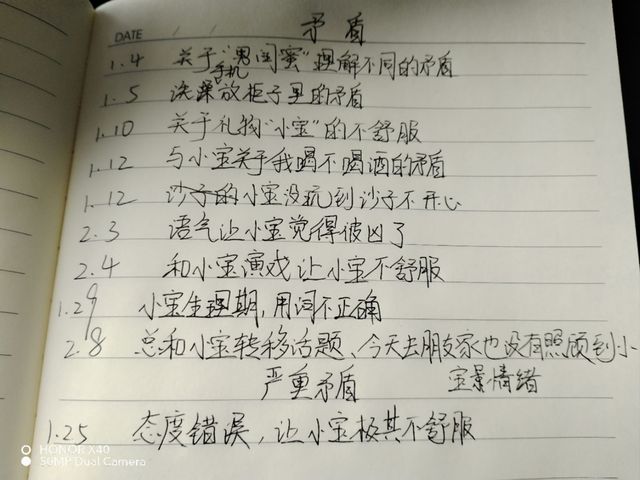 矛盾
DATE / /
1.4 关于“男闺蜜”理解不同的矛盾
1.5 洗澡手机放柜子里的矛盾
1.10 关于礼物“小宝”的不舒服
1.12 与小宝关于我喝不喝酒的矛盾
1.12 沙子的小宝没玩到沙子不开心
2.3 语气让小宝觉得被凶了
2.4 和小宝演戏让小宝不舒服
1.29 小宝生理期,用词不正确
2.8 总和小宝转移话题、今天去朋友家也没有照顾到小
宝 情绪
严重矛盾
1.25 态度错误,让小宝极其不舒服
HONOR X40
50MP Dual Camera